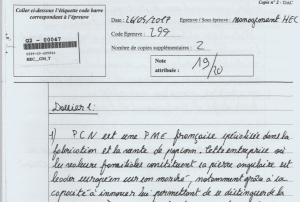 Copie n° 2 - DAC
Coller ci-dessous l'étiquette code barre
correspondant à l'épreuve
Date : 24/05/2018
Epreuve / Sous-épreuve : management HEC
Code Epreuve : 299
Nombre de copies supplémentaires : 2
Note
attribuée : 19/20
HEC_GM_T
Dossier 1 :
1) PCN est une PME française spécialisée dans la
fabrication et la vente de
les valeurs familiales constituent sa pierre angulaire est
leader européen sur son marché, notamment grâce à la
capacité à innover lui permettant de se distinguer de la